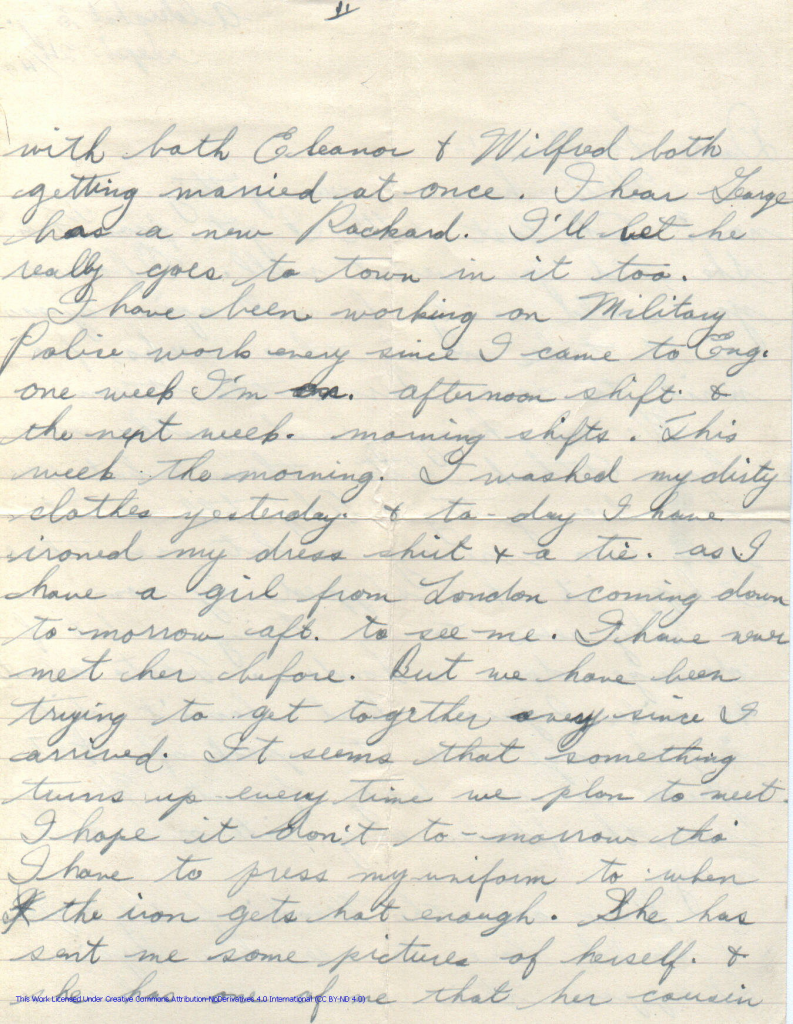 II
with both Eleanor & Wilfred both
getting married at once. I hear George
has a new Packard. I'll bet he
really goes to town in it too.
I have been working on Military
Police work every since I came to Eng.
one week I'm on. afternoon shift. &
the next week. morning shifts. This
week the morning. I washed my dirty
clothes yesterday. & to-day I have
ironed my dress shirt & a tie. as I
have a girl from London coming down
to-morrow aft. to see me. I have never
met her before. But we have been
trying to get together every since I
arrived. It seems that something
turns up every time we plan to meet.
I hope it don't to-morrow tho'
I have to press my uniform to when
the iron gets hot enough. She has
sent me some pictures of herself. &
she has one of me that her cousin
This Work Licensed Under Creative Commons Attribution-NoDerivatives 4.0 International (CC BY-ND 4.0)